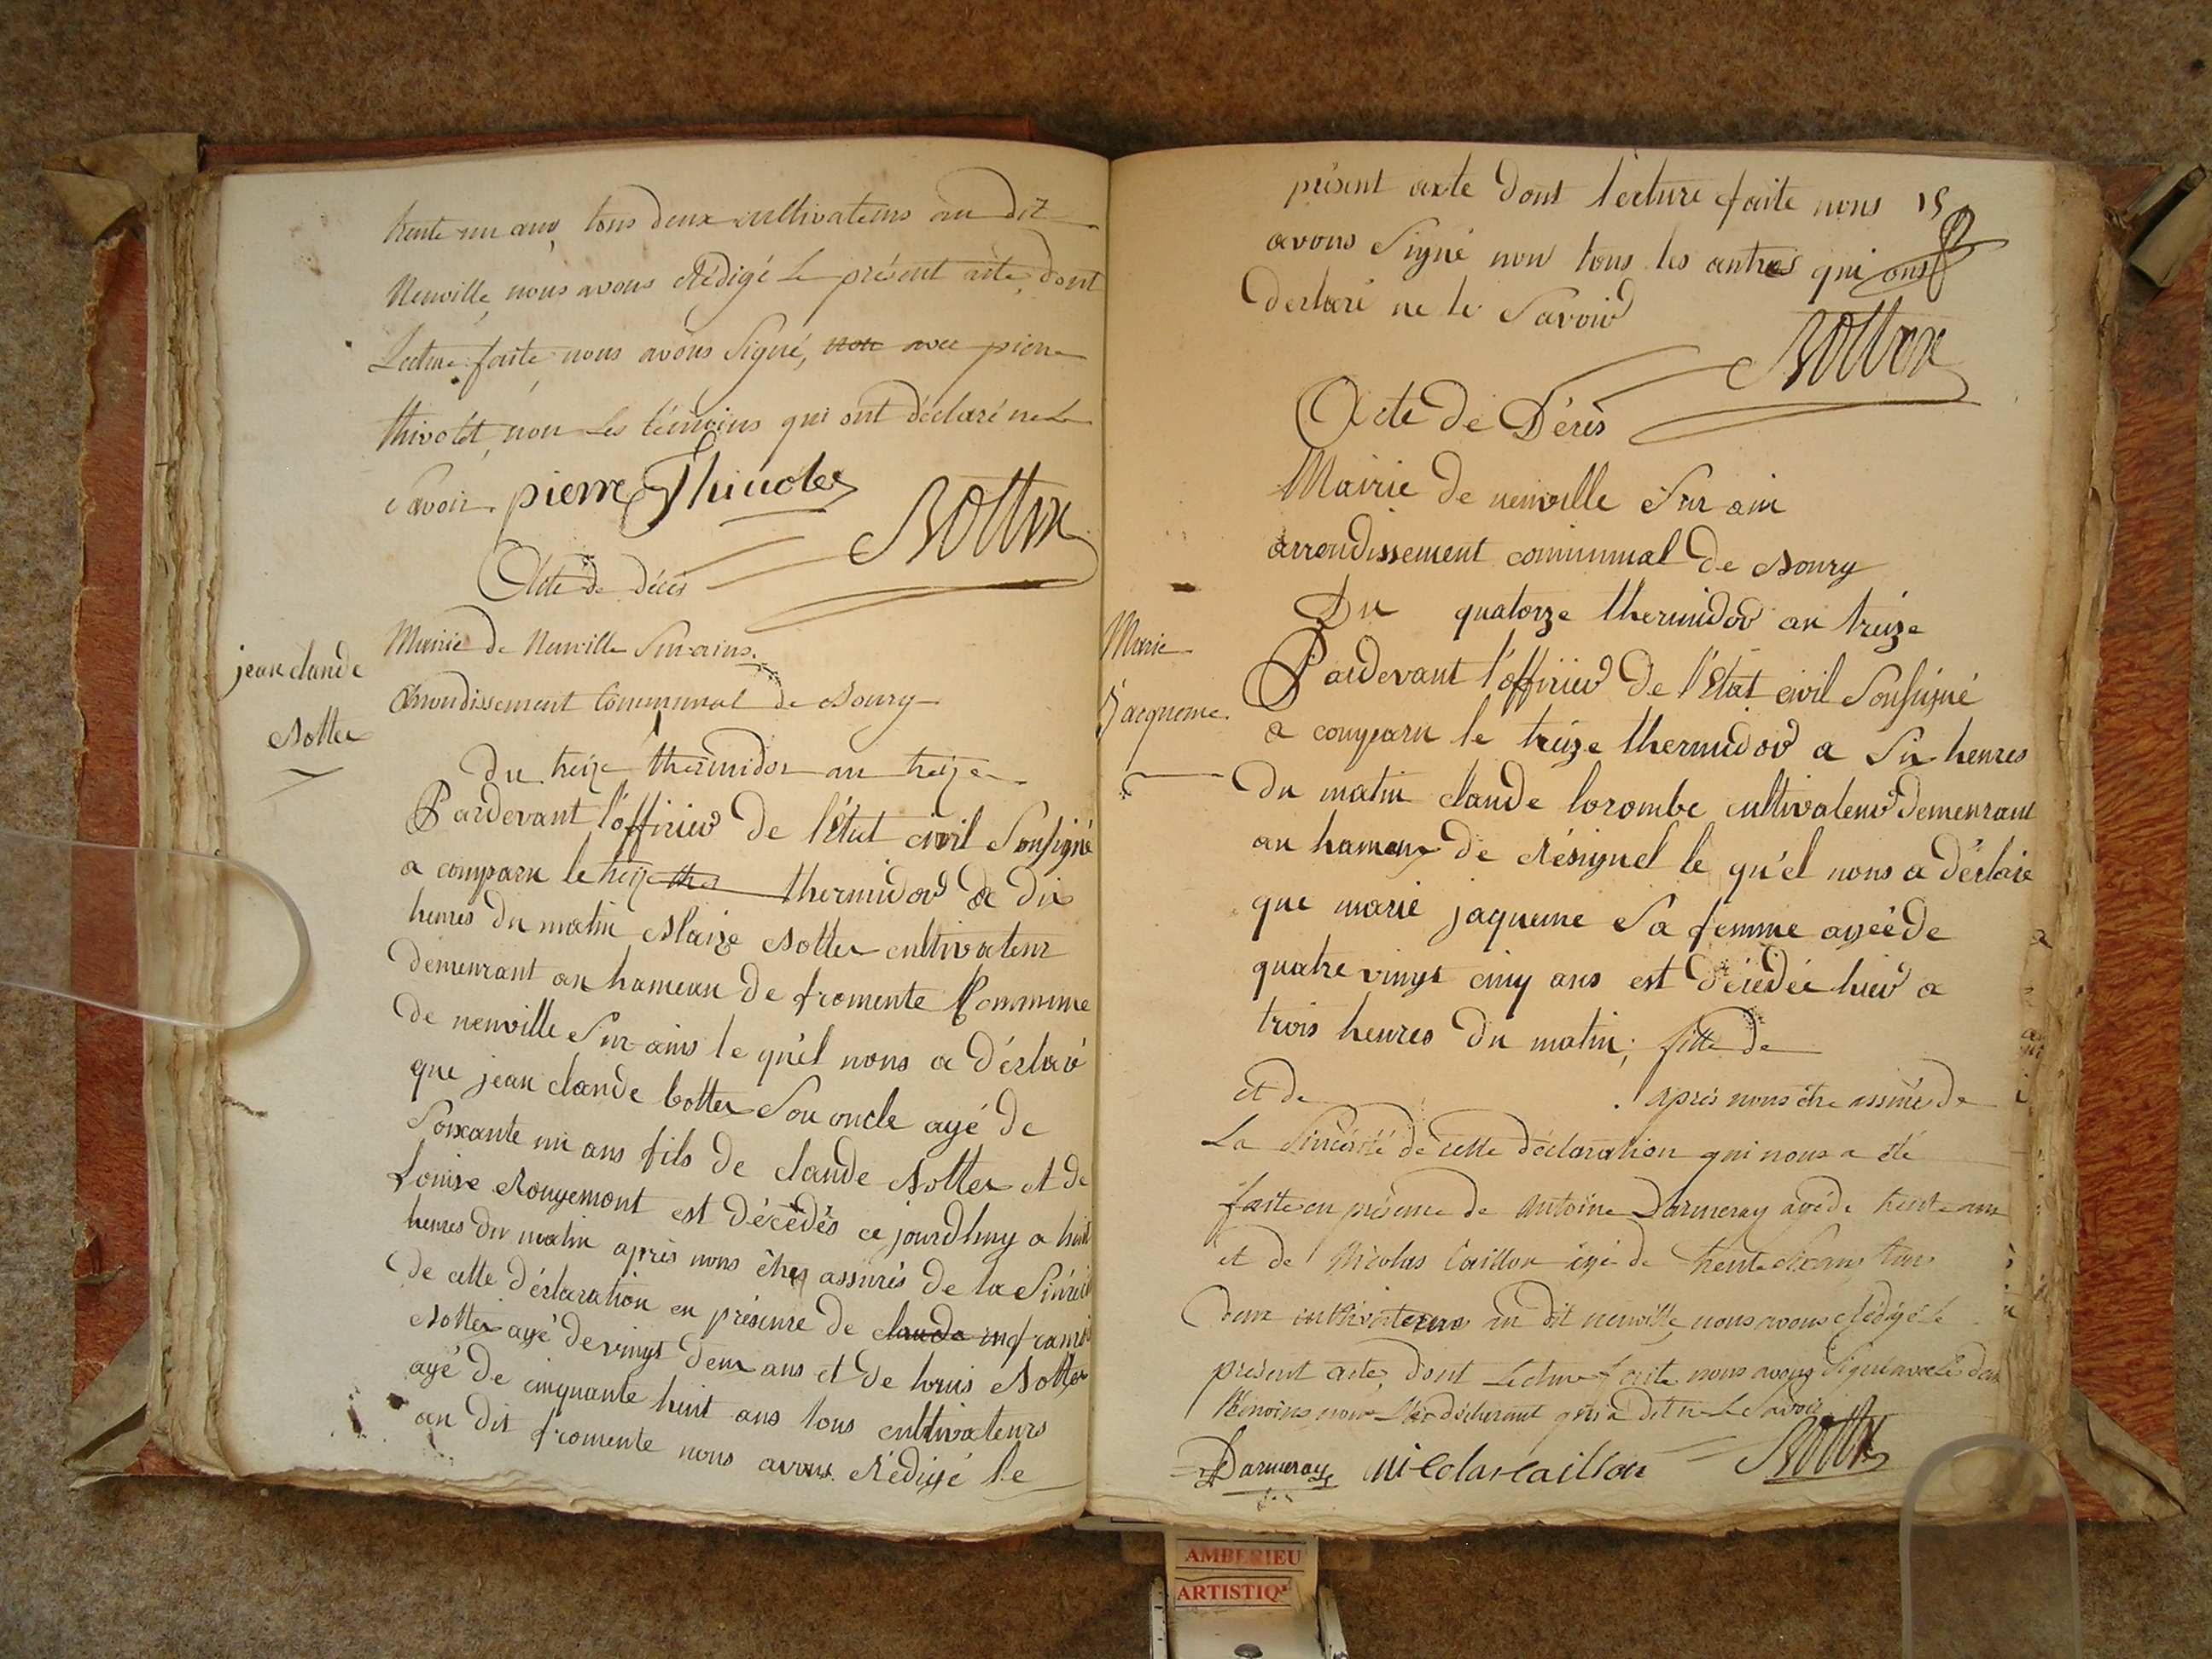 trente un ans, tous deux cultivateurs au dit
Neuville, nous avons Rédigé Le présent acte, dont
Lecture faite nous avons Signé, non avec pierre
thivolet, non Les témoins qui ont déclaré ne Le
savoir. pierre Thivolet Bottex
Acte de décès
jean claude
Bottex
Mairie de Neuville Sur ains.
Arrondissement Communal de Bourg
du treize thermidor an treize
Pardevant l'officier de l'État civil Sousigné
a comparu le treize ther thermidor a dix
heures du matin Blaize Bottex cultivateur
demeurant au hameau de fromente Commune
de neuville Sur ains le qu'el nous a déclaré
que jean claude bottex Son oncle agé de
Soixante un ans fils de claude Bottex et de
Louise Rougemont est décédés ce jourdhuy a huit
heures du matin après nous être assurés de la Sincérité
de cette déclaration en présence de claude françois
Bottex agé de vingt deux ans et de louis Bottex
agé de cinquante huit ans tous cultivateurs
au dit fromente nous avons Rédigé le
15
présent acte dont lecture faite nous
avons Signé non tous les autres qui ont
declaré ne le Savoir
Bottex
Acte de Décès
Mairie de neuville Sur ain
arrondissement communal de Bourg
Du quatorze thermidor an treize
Marie
Jacqueme.
Pardevant l'officier de l'État civil Sousigné
a comparu le treize thermidor a Six heures
du matin claude lorombe cultivateur demeurant
au hameau de Résignel le qu'el nous a déclaré
que marie jaqueme Sa femme agée de
quatre vingt cinq ans est décédée hier a
trois heures du matin; fille de
et de . après nous être assuré de
La Sincérité de cette déclaration qui nous a été
faite en présence de Antoine Darmeray agé de trente ans
et de Nicolas Caillon agé de trente Six ans tous
deux cultivateurs au dit neuville nous avons Rédigé le
présent acte, dont Lecture faite nous avons Signé avec Les deux
témoins non Le déclarant qui a dit ne Le Savoir
Darmeray nicolas caillon Bottex
AMBERIEU
ARTISTIQ